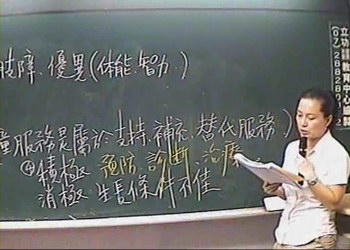 肢障、優異(体能、智力、)
童服務是屬於支持、補充、替代服務)
④積極 預防、診断、治療
消極 生長條件不佳
立功
教育中心